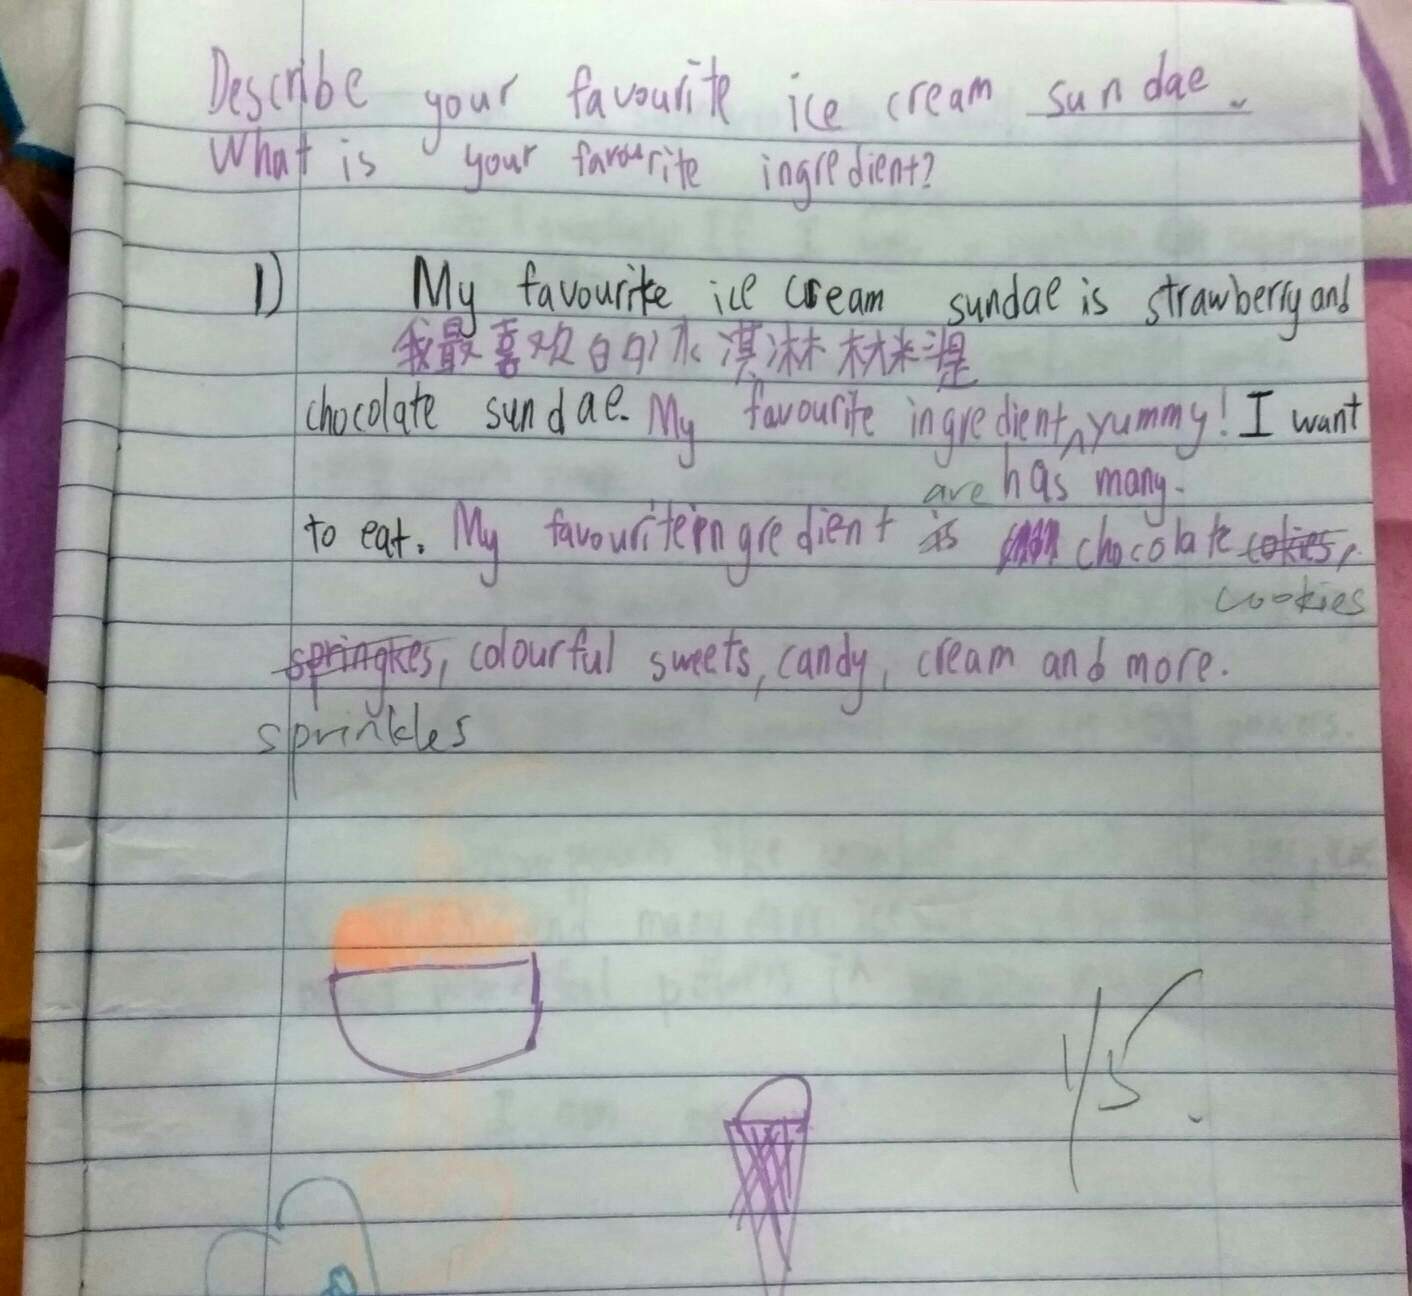 Describe your favourite ice cream sundae.
What is your favourite ingredient?
1) My favourite ice cream sundae is strawberry and
我最喜欢的冰淇淋材料是
chocolate sundae. My favourite ingredient ^ yummy! I want
are has many.
to eat. My favouriteingredient is chocolate cokies,
cookies
springkes, colourful sweets, candy, cream and more.
sprinkles
1/5